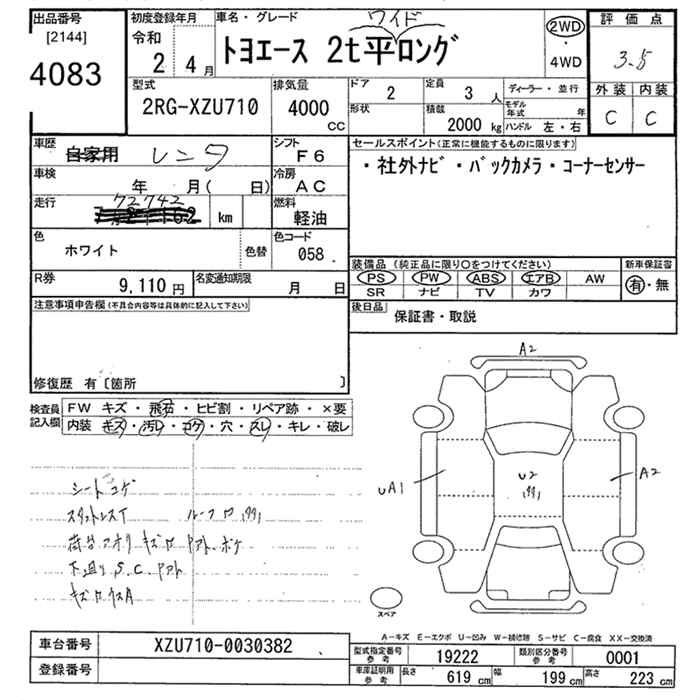 出品番号
[2144]
4083
初度登録年月
令和
2 年 4 月
車名・グレード
ワイド
トヨエース 2t平ロング
2WD
・
4WD
評価点
3.5
外装 内装
C C
型式
2RG-XZU710
排気量
4000
CC
ドア
2
定員
3 人
形状
積載
2000 kg
ディーラー・並行
モデル年式 年
ハンドル 左・右
車歴
自家用 レンタ
シフト
F6
車検
年 月( 日)
冷房
AC
走行
72742
km
燃料
軽油
色
ホワイト
色替
色コード
058
R券
9,110 円
名変通知期限
月 日
セールスポイント(正常に機能するものに限ります)
・社外ナビ・バックカメラ・コーナーセンサー
装備品 (純正品に限り○をつけてください)
PS PW ABS エアB AW
SR ナビ TV カワ
新車保証書
有・無
後日品
保証書・取説
注意事項申告欄(不具合内容等は具体的に記入して下さい)
修復歴 有〔箇所 〕
検査員
記入欄
FW キズ・飛石・ヒビ割・リペア跡・×要
内装 キズ・汚レ・コゲ・穴・スレ・キレ・破レ
シートコゲ
下廻りS.C.
A2
UA1
U2
A2
スペア
A-キズ E-エクボ U-凹み W-補修跡 S-サビ C-腐食 XX-交換済
車台番号
XZU710-0030382
登録番号
型式指定番号
参考
19222
類別区分番号
参考
0001
車庫証明用
参考
長さ 619 cm
幅 199 cm
高さ 223 cm